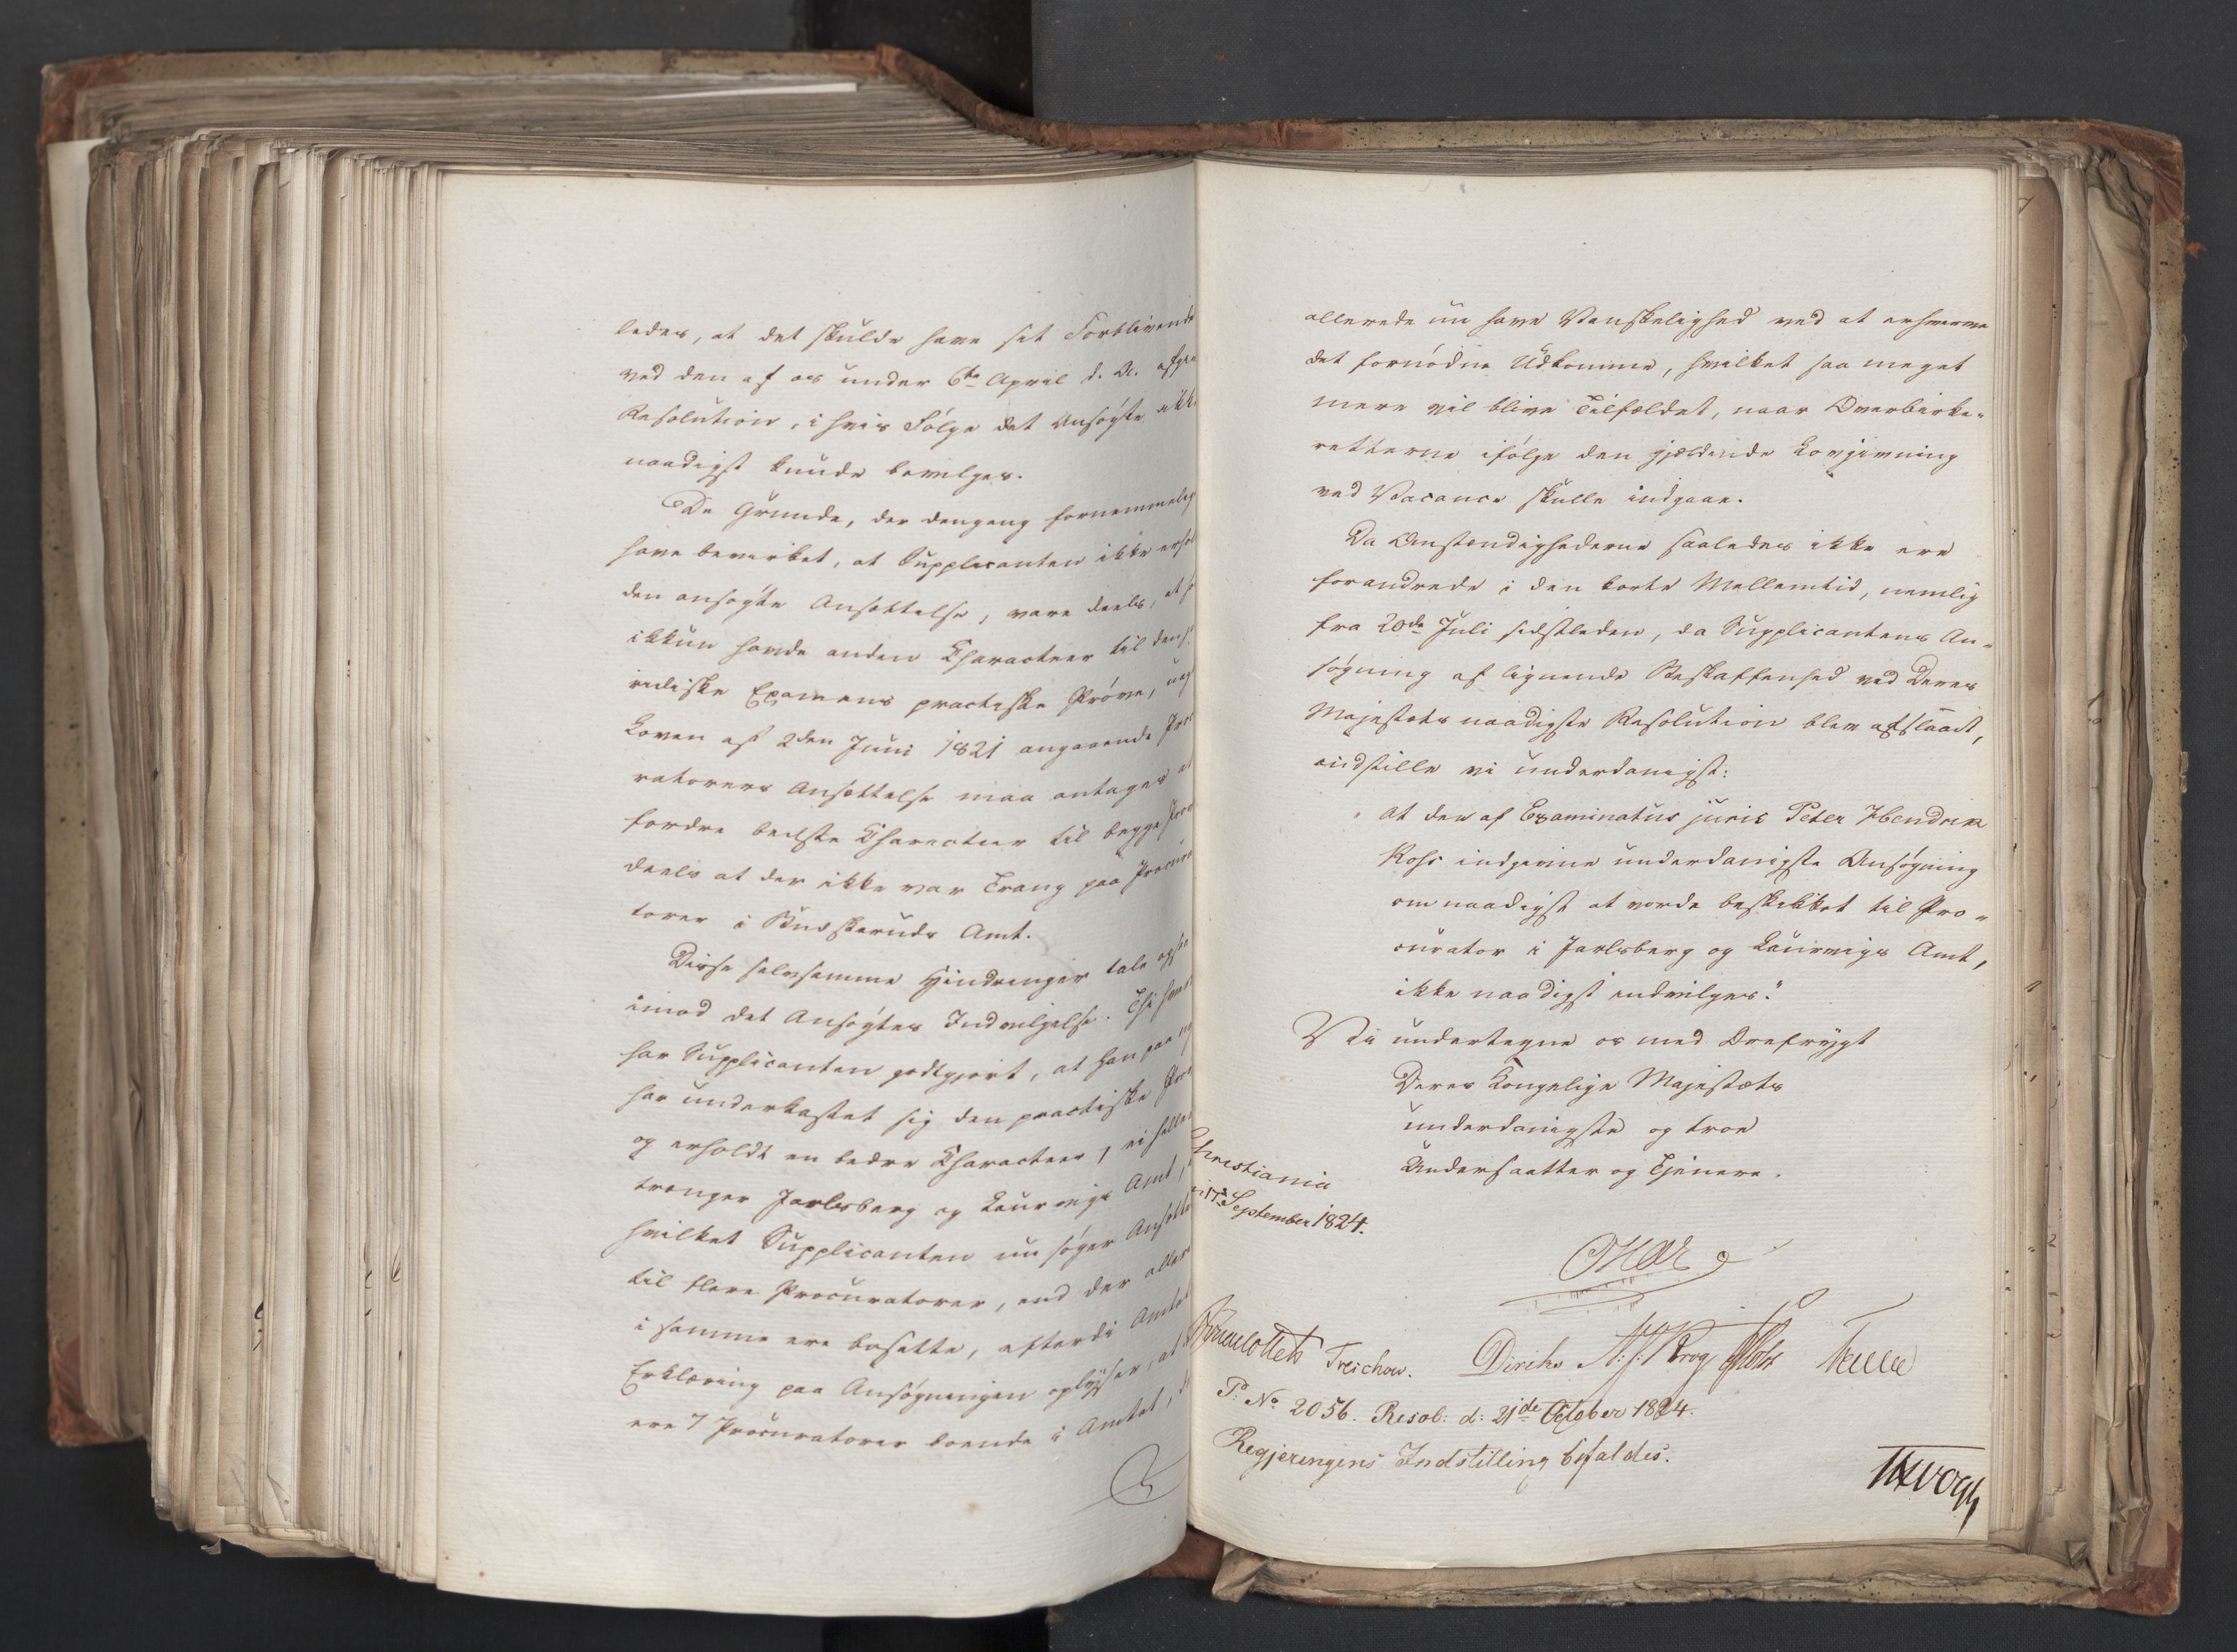 ledes, at det skulde have sit Forblivende
ved den af os under 6te April d. A. afgi
Resolution, i hvis Følge det Ansøgte ikke
naadigst kunde bevilges.
De Grunde, der dengang fornemmelig
have bevirket, at Supplicanten ikke erhol
den ansøgte Ansættelse, vare deels, at h
ikkun havde anden Charakteer til den ju
ridiske Examens practiske Prøve, uag
Loven af 2den Juni 1821 angaaende Proc
ratorers Ansættelse maa antages at
fordre bedste Charakteer til begge Prøv
deels at der ikke var Trang paa Procura
torer i Budskeruds Amt.
Disse selvsamme Hindringer tale ogsaa
imod det Ansøgtes Indvilgelse. Thi hver
har Supplicanten godtgjort, at han paa ny
har underkastet sig den practiske Prøv
og erholdt en bedre Charakteer, ei heller
trænger Jarlsberg og Laurvigs Amt,
hvilket Supplicanten nu søger Ansætte
til flere Procuratorer, end der aller
i samme ere besatte, efterdi Amtet
Erklæring paa Ansøgningen oplyser, at
ere 7 Procuratorer boende i Amtet,
allerede nu have Vanskelighed ved at erhverve
det fornødne Udkomme, hvilket saa meget
mere vil blive Tilfældet, naar Overbirke-
retterne ifølge den gjældende Lovgivning
ved Vacance skulle indgaae.
Da Omstændighederne saaledes ikke ere
forandrede i den korte Mellemtid, nemlig
fra 20de Juli sidstleden, da Supplicantens An-
søgning af lignende Beskaffenhed ved Deres
Majestæts naadigste Resolution blev afslaaet,
indstille vi underdanigst:
"At den af Examinatus juris Peter Hendrik
Rohs indgivne underdanigste Ansøgning
om naadigst at vorde beskikket til Pro-
curator i Jarlsberg og Laurvigs Amt,
ikke naadigst indvilges."
Vi undertegne os med Ærefrygt
Deres Kongelige Majestæts
underdanigste og troe
Undersaatter og Tjenere.
Christiania
17 September 1824.
Oscar
Treschow. Diriks Krog Holst
P: No 2056. Resol: d: 21de October 1824.
Regjeringens Indstilling bifaldes.